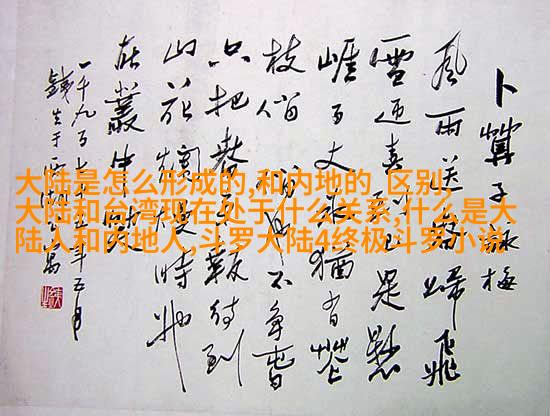 大陆是怎么形成的,和内地的 区别,
大陆和台湾现在处于什么关系,什么是大
陆人和内地人,斗罗大陆4终极斗罗小说
卜算子詠梅
風雨送春歸飛
雪迎春到已是懸
崖百丈冰猶有花
枝俏俏也不争春
只把春來報待到
山花爛漫時她
在叢中笑
一千九百七十五年五月